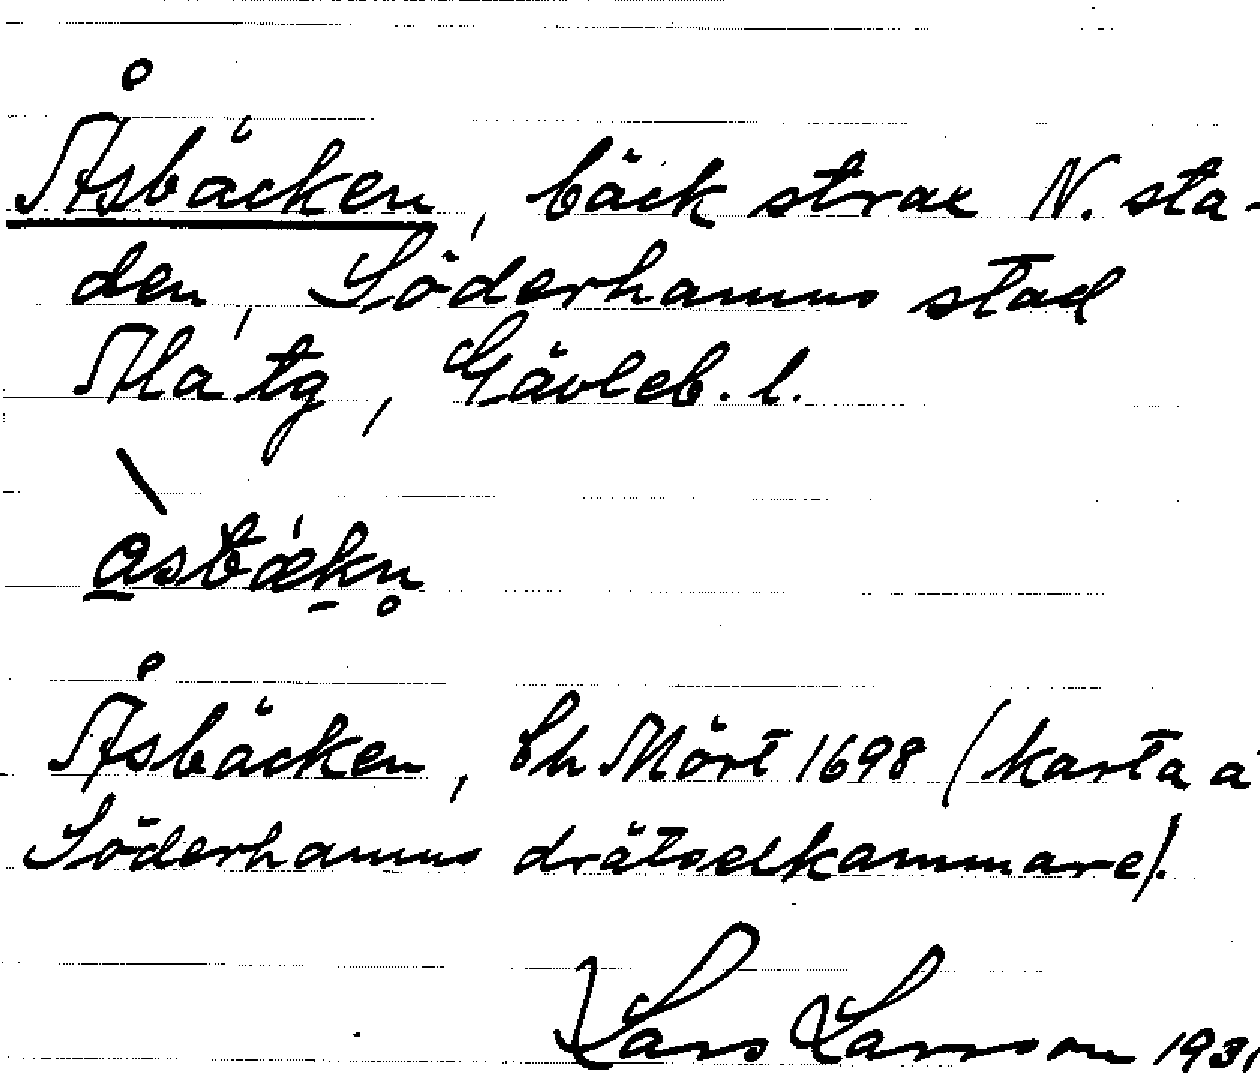 Åsbäcken, bäck strax N. sta-
den, Söderhamns stad
Ala tg, Gävleb. l.
àsbækn̥
Åsbäcken, Eh Mört 1698 (karta å
Söderhamns drätselkammare).
Lars Larsson 1931